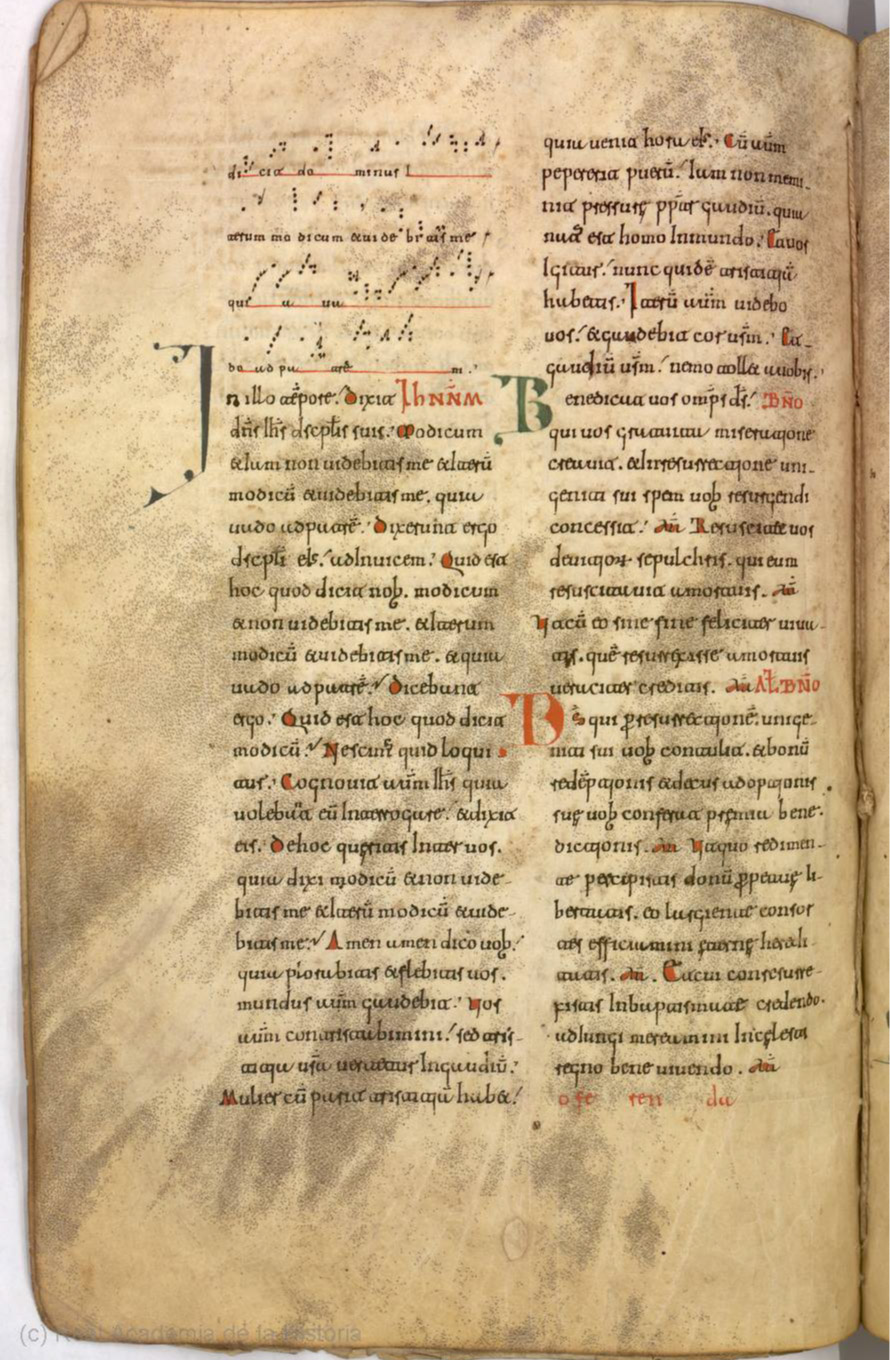 di cit do minus I
terum modicum & uidebitis me
qui a ua
do ad pa tre m.
In illo tempore. Dixit Ioh̄NN̄M
dn̄s Ih̄s discpl̄is suis. Modicum
& Iam non uidebitis me & Iterū
modicū & uidebitis me, quia
uado ad patrē. Dixerunt ergo
discpl̄i eI's. ad Inuicem. Quid est
hoc quod dicit nob. modicum
& non uidebitis me. & Iterum
modicū & uidebitis me. & quia
uado ad patrē. Dicebunt
ergo. Quid est hoc quod dicit
modicū. Nescim' quid loqui
tur. Cognouit aut̄m Ih̄s quia
uolebān̄t eū Interrogare. & dixit
eis. De hoc queritis Inter uos.
quia dixi modicū & non uide-
bitis me & Iterū modicū & uide-
bitis me. Amen amen dico uob.
quia plorabitis & flebitis uos.
mundus aut̄m gaudebit. Uos
aut̄m contristabimini. sed tris-
titia ūra uertetur In gaudiū.
Mulier cū parit tristitiā habet.
quia uenit hora eIs. Cū aut̄m
pepererit puerū. Iam non memi-
nit pressurę pp̄ter gaudiū. quia
nat' est homo In mundo. Et uos
Igitur. nunc quidē tristitiā
habetis. Iterū aut̄m uidebo
uos. & gaudebit cor ūsm. Et
gaudiū ūsm. nemo tollet a uobis.
Benedicat uos omp̄s ds̄. Bn̄o
qui uos gratuita miseratione
creauit. & In resurrectione uni-
geniti sui spem uob resurgendi
concessit. Am̄ Resuscitet uos
de uitiorum sepulchris. qui eum
resuscitauit a mortuis. Am̄
Ut cū eo sine fine feliciter uiua-
tis. quē resurrexisse a mortuis
ueraciter creditis. Am̄ Al̄. Bn̄o
Ds̄ qui p resurrectionē. unige-
niti sui uob contulit. & bonū
redēptionis & decus adoptionis
suę uob conferat premia bene-
dictionis. Am̄ Ut a quo redimen-
te percepistis donū ppetuę li-
bertatis. eo largiente consor
tes efficiamini ęternę heredi
tatis. Am̄. Et cui consurre-
xistis In baptismate credendo.
adIungi mereamini In cęlesti
regno bene uiuendo. Am̄
ofe ren da
(c) Real Academia de la Historia